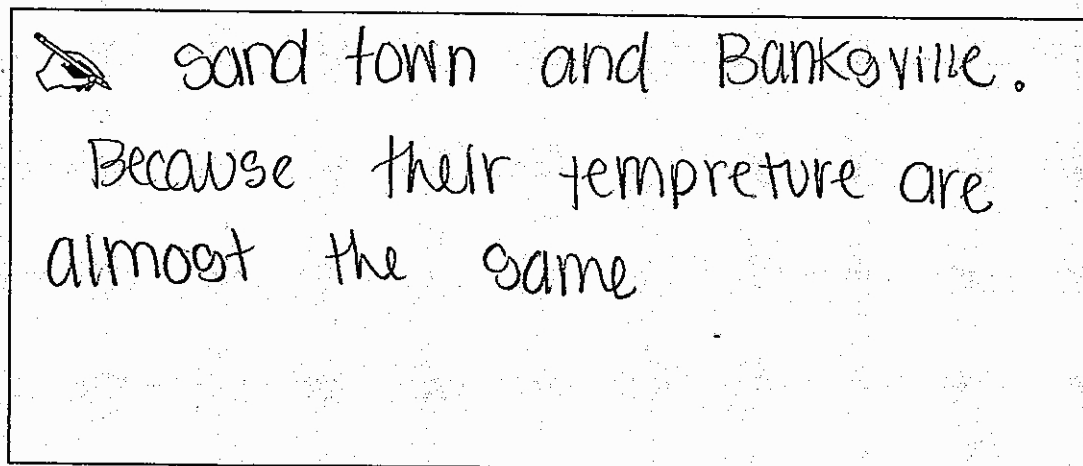 sand town and Banksville.
Because their tempreture are
almost the same